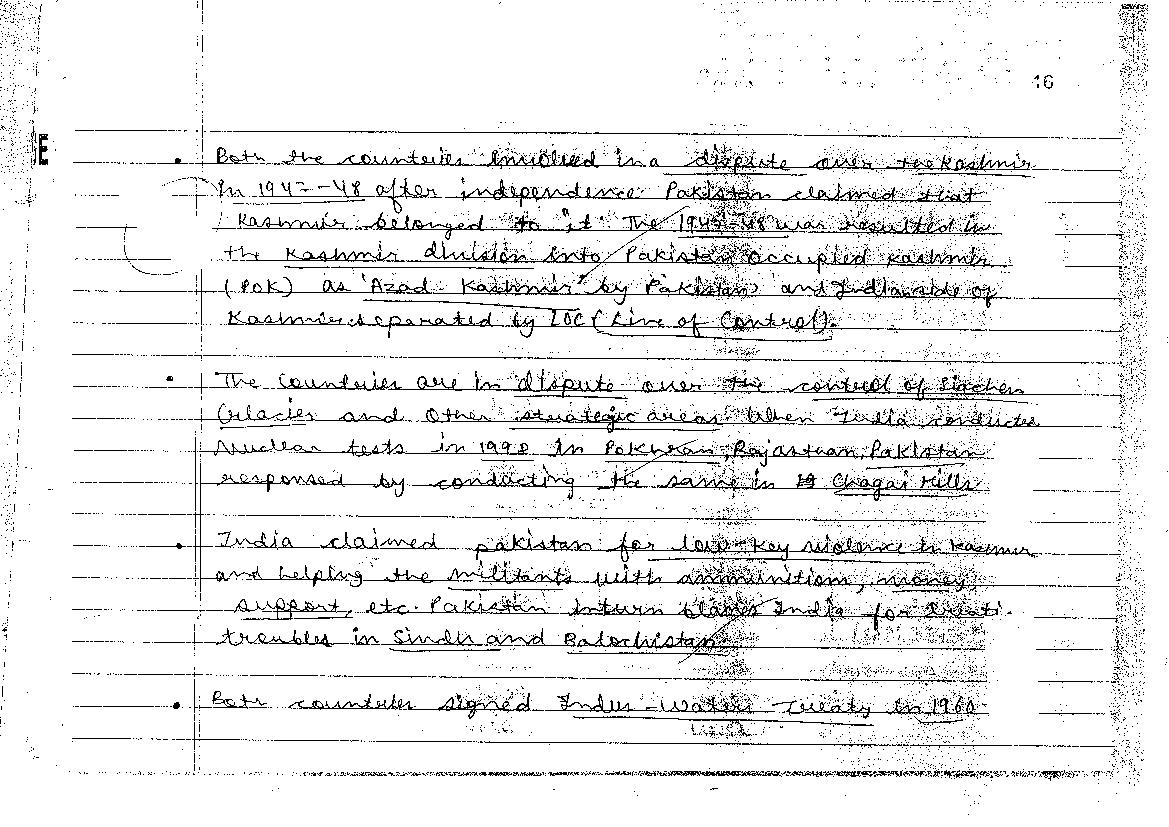 16
E
• Both the countries involved in a dispute over the Kashmir
In 1947-48 after independence. Pakistan claimed that
Kashmir belonged to "it" The 1947-48 war resulted in
the Kashmir division into Pakistan occupied Kashmir
(POK) as 'Azad Kashmir" by Pakistan and Indian side of
Kashmir separated by LOC (Line of Control).
• The countries are in dispute over the control of Siachen
Glacier and other strategic areas When India conductes
Nuclear tests in 1998 In Pokhran, Rajasthan, Pakistan
responsed by conducting the same in Chagai Hills
• India claimed pakistan for low-key violence in Kashmir
and helping the militants with ammunition, money
support, etc. Pakistan inturn blames India for
troubles in Sindh and Balochistan
• Both countries signed Indus-Waters Treaty in 1960